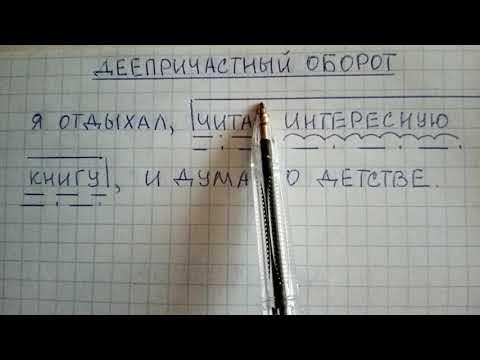 ДЕЕПРИЧАСТНЫЙ ОБОРОТ
Я ОТДЫХАЛ, ЧИТАЯ ИНТЕРЕСНУЮ
КНИГУ, И ДУМАЛ О ДЕТСТВЕ.